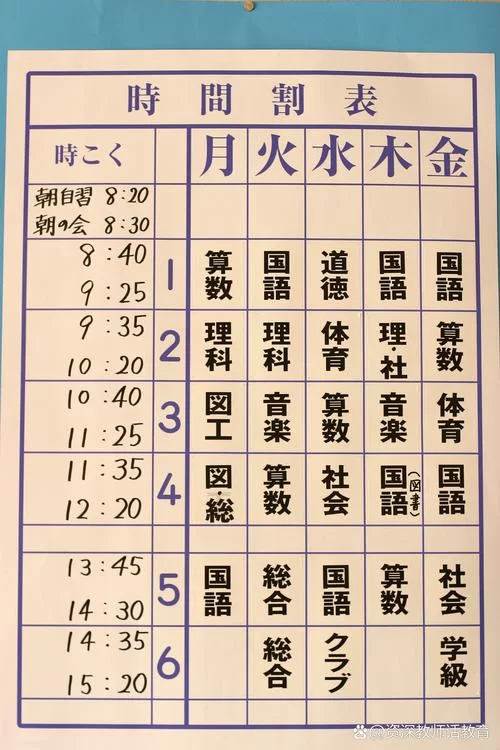 時間割表
時こく 月 火 水 木 金
朝自習 8:20
朝の会 8:30
8:40 9:25 1 算数 国語 道徳 国語 国語
9:35 10:20 2 理科 理科 体育 理・社 算数
10:40 11:25 3 図工 音楽 算数 音楽 体育
11:35 12:20 4 図・総 算数 社会 国語(図書) 国語
13:45 14:30 5 国語 総合 国語 算数 社会
14:35 15:20 6 総合 クラブ 学級
资深教师活教育